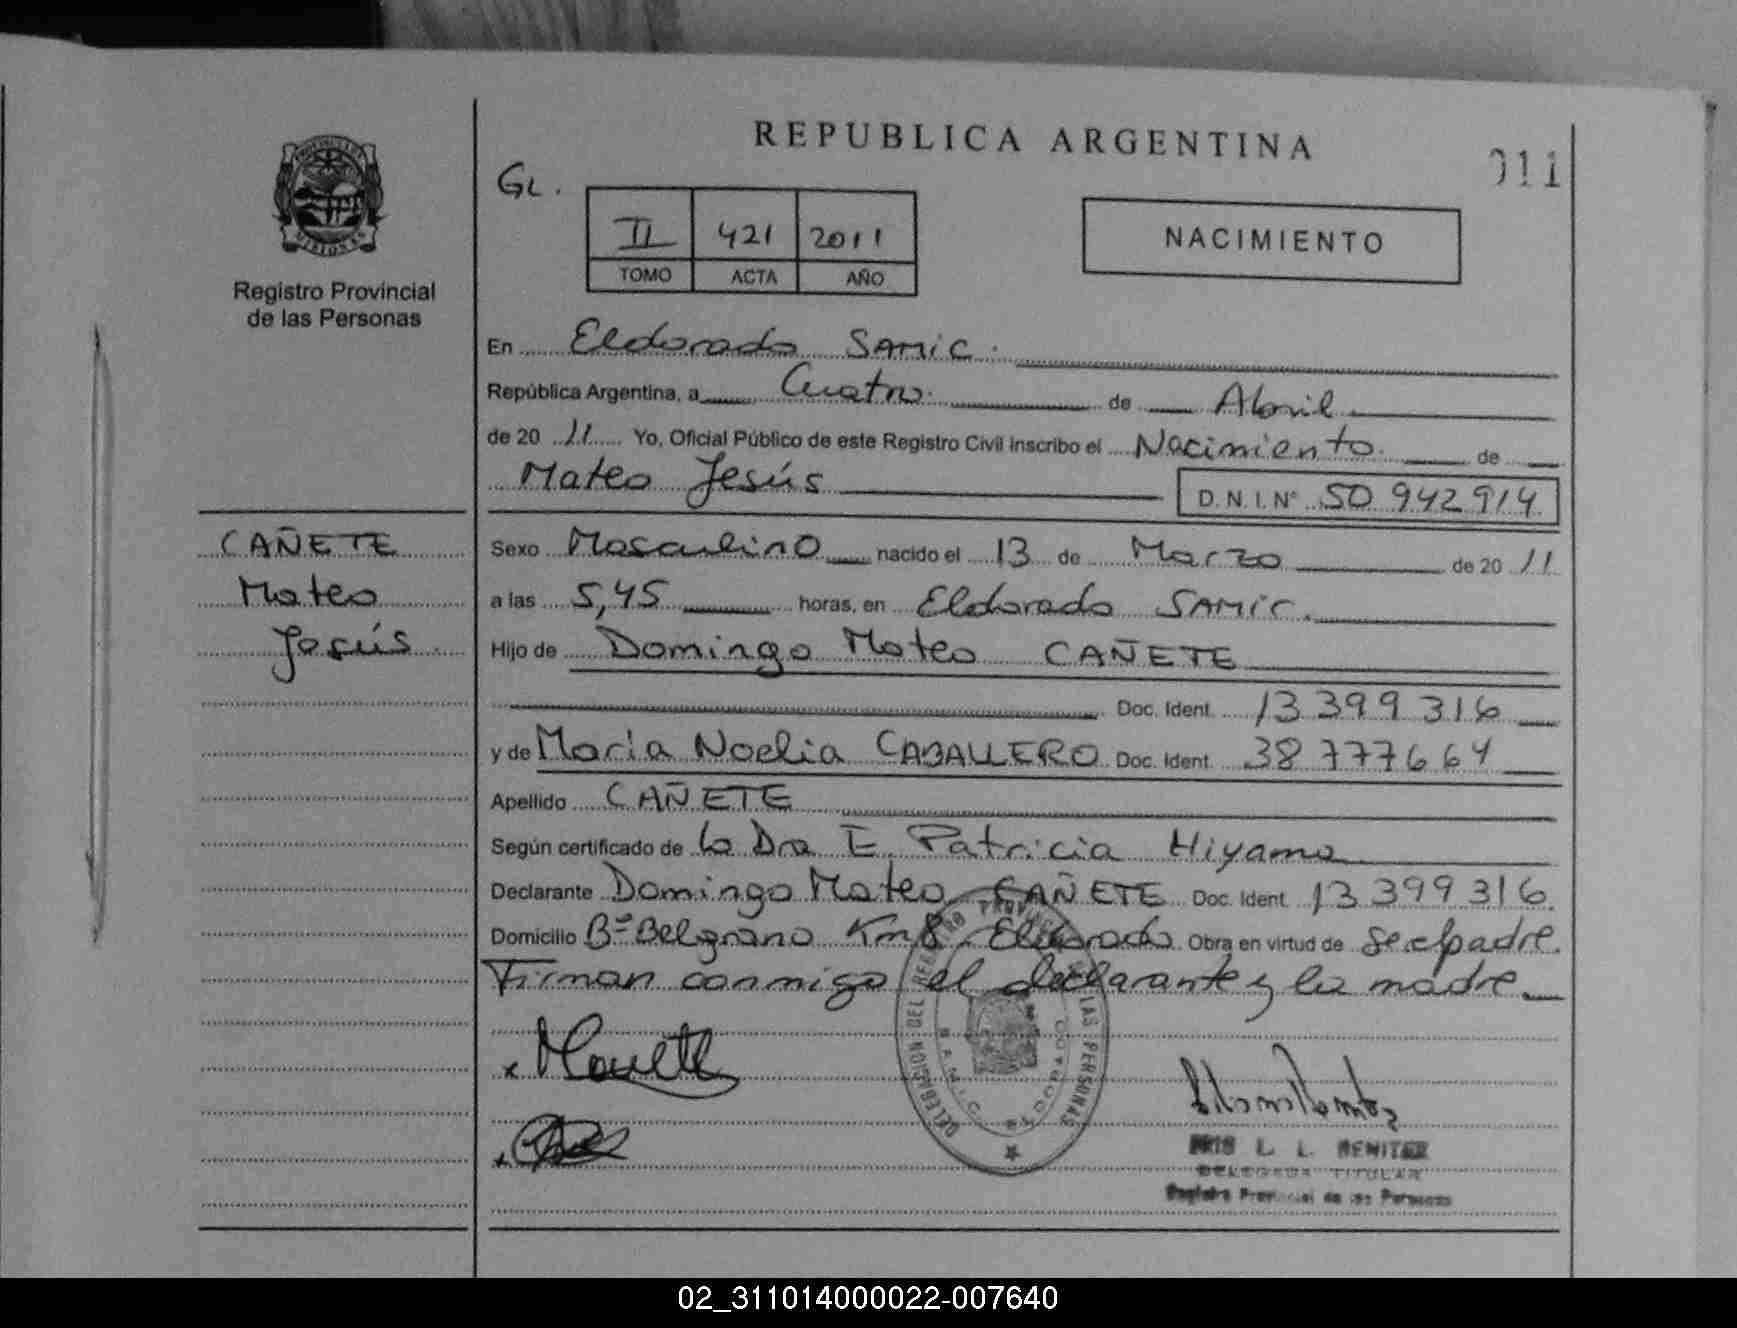 REPUBLICA ARGENTINA
011
GL.
II 421 2011
TOMO ACTA AÑO
NACIMIENTO
Registro Provincial
de las Personas
En Eldorado SAMIC.
República Argentina, a Cuatro. de Abril
de 20 11 Yo, Oficial Público de este Registro Civil inscribo el Nacimiento. de
Mateo Jesús D.N.I.Nº 50 942 914
CAÑETE
Mateo
Jesús
Sexo Masculino nacido el 13 de Marzo de 20 11
a las 5,45 horas, en Eldorado SAMIC.
Hijo de Domingo Mateo CAÑETE
Doc. Ident. 13 399 316
y de Maria Noelia CABALLERO Doc. Ident. 38 777 664
Apellido CAÑETE
Según certificado de la Dra E. Patricia Hiyama
Declarante Domingo Mateo CAÑETE Doc. Ident. 13 399 316.
Domicilio Bº Belgrano Km 8 Eldorado Obra en virtud de ser el padre.
Firman conmigo el declarante y la madre.
DELEGACION DEL REGISTRO LAS PERSONAS
SAMIC
L. L. BENITEZ
DELEGADA TITULAR
Registro Provincial de las Personas
02_311014000022-007640